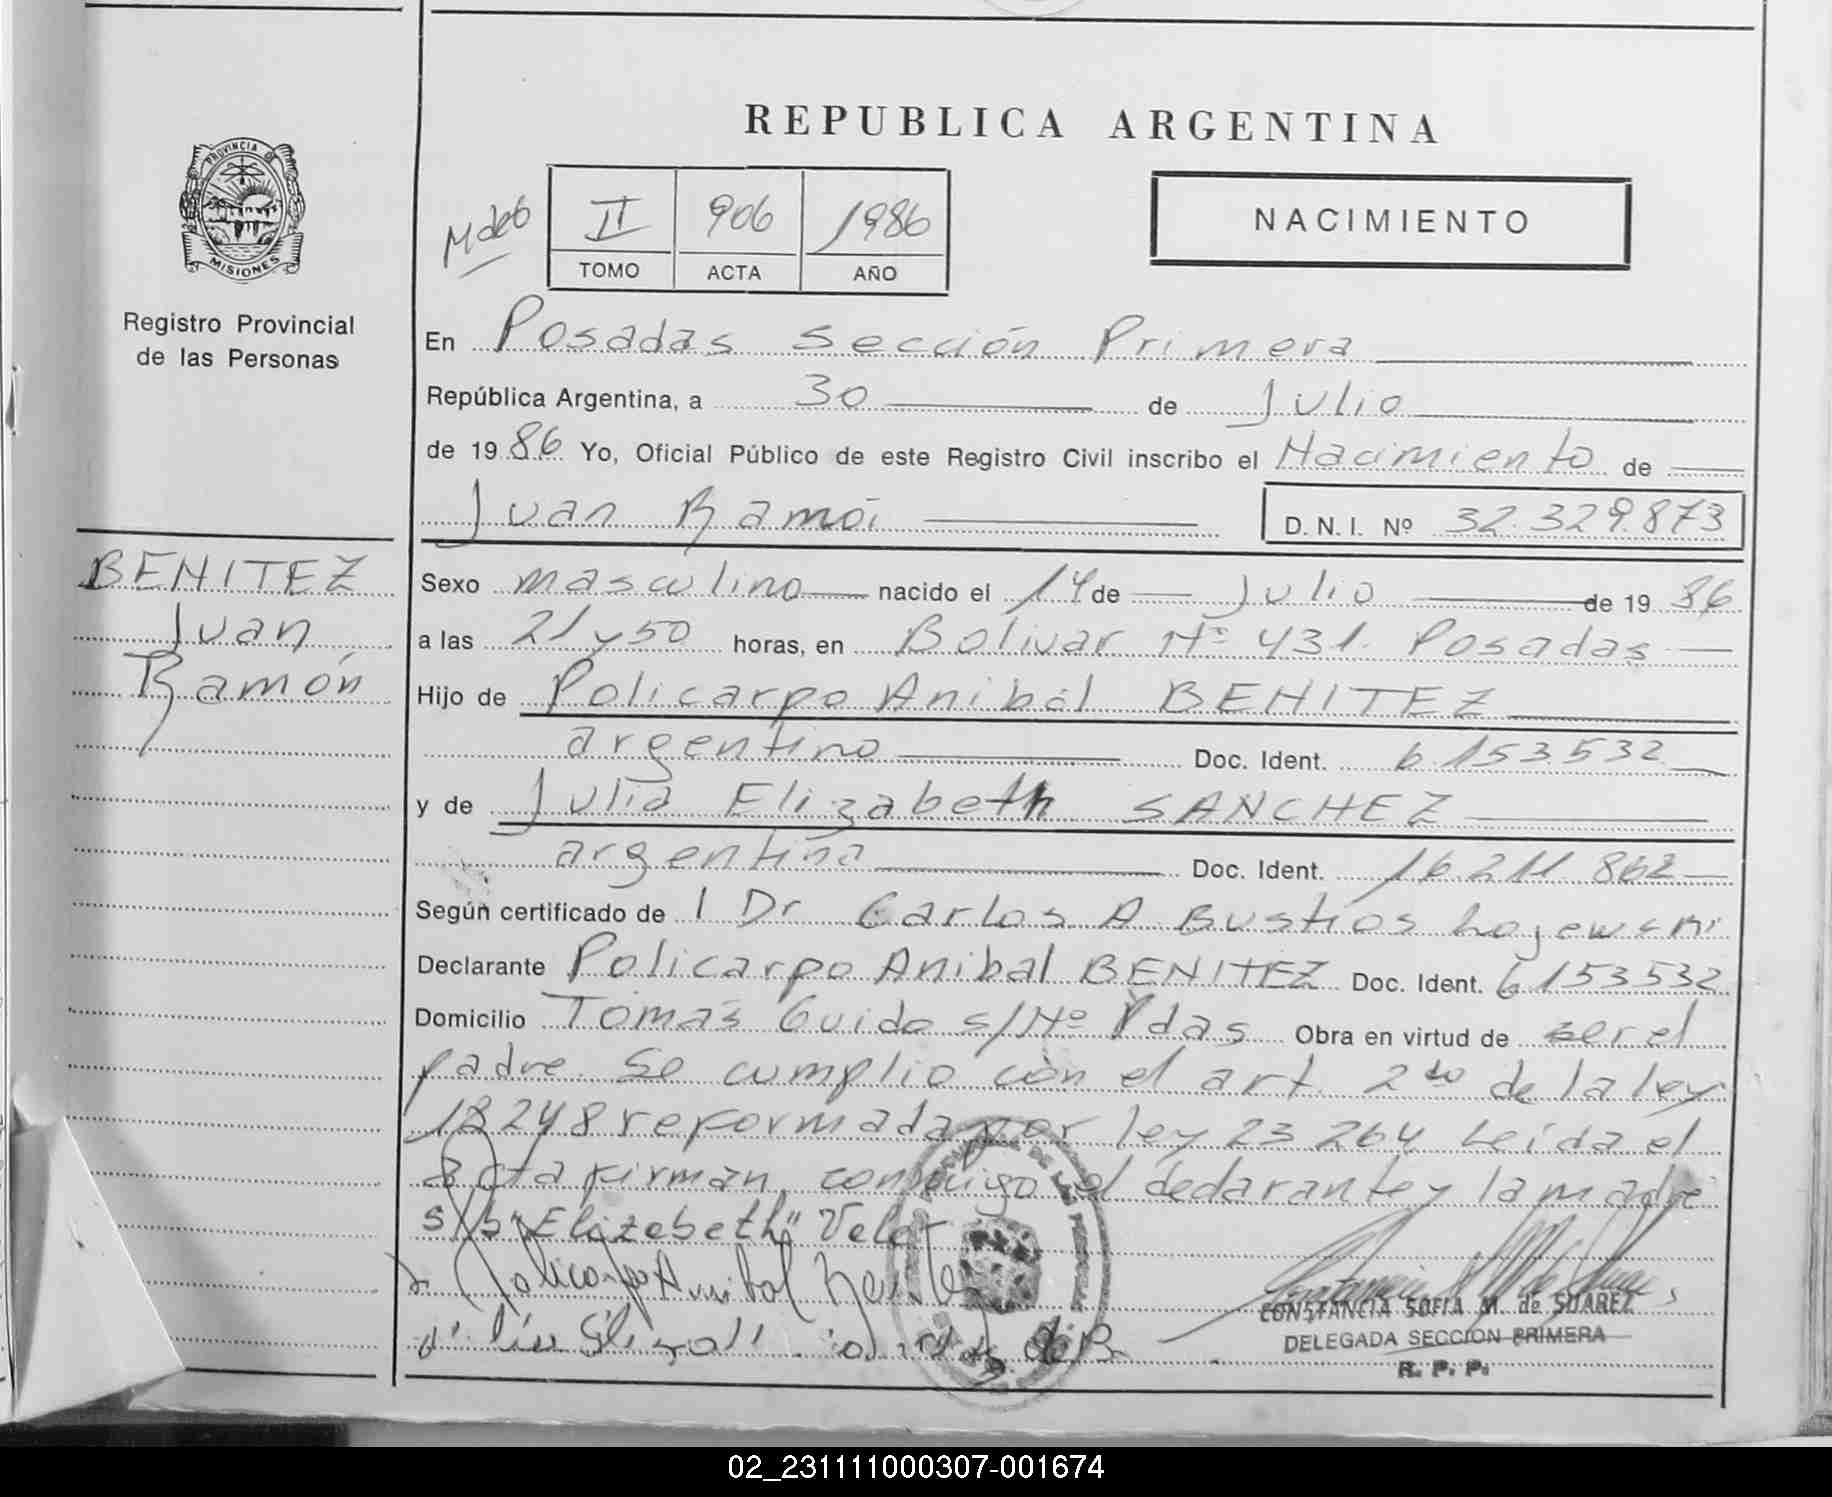 REPUBLICA ARGENTINA
PROVINCIA DE
MISIONES
Registro Provincial
de las Personas
II 906 1986
TOMO ACTA AÑO
NACIMIENTO
En Posadas Sección Primera
República Argentina, a 30 de Julio
de 1986 Yo, Oficial Público de este Registro Civil inscribo el Nacimiento de
Juan Ramón
D.N.I. Nº 32.329.873
BENITEZ
Juan
Ramón
Sexo masculino nacido el 14 de Julio de 1986
a las 21 y 50 horas, en Bolivar Nº 431. Posadas
Hijo de Policarpo Anibal BENITEZ
argentino Doc. Ident. 6.153.532
y de Julia Elizabeth SANCHEZ
argentina Doc. Ident. 16.211.862
Según certificado de l Dr Carlos A Bustios
Declarante Policarpo Anibal BENITEZ Doc. Ident. 6.153.532
Domicilio Tomas Guido s/Nº Pdas Obra en virtud de ser el
padre. Se cumplio con el art. 2do de la ley
18248 reformada por ley 23.264 Leída el
acta firman conmigo el declarante y la madre
s/b "Elizebeth" Vale
Policarpo Anibal Benitez
CONSTANCIA SOFIA M. de SUAREZ
DELEGADA SECCION PRIMERA
R. P. P.
02_231111000307-001674